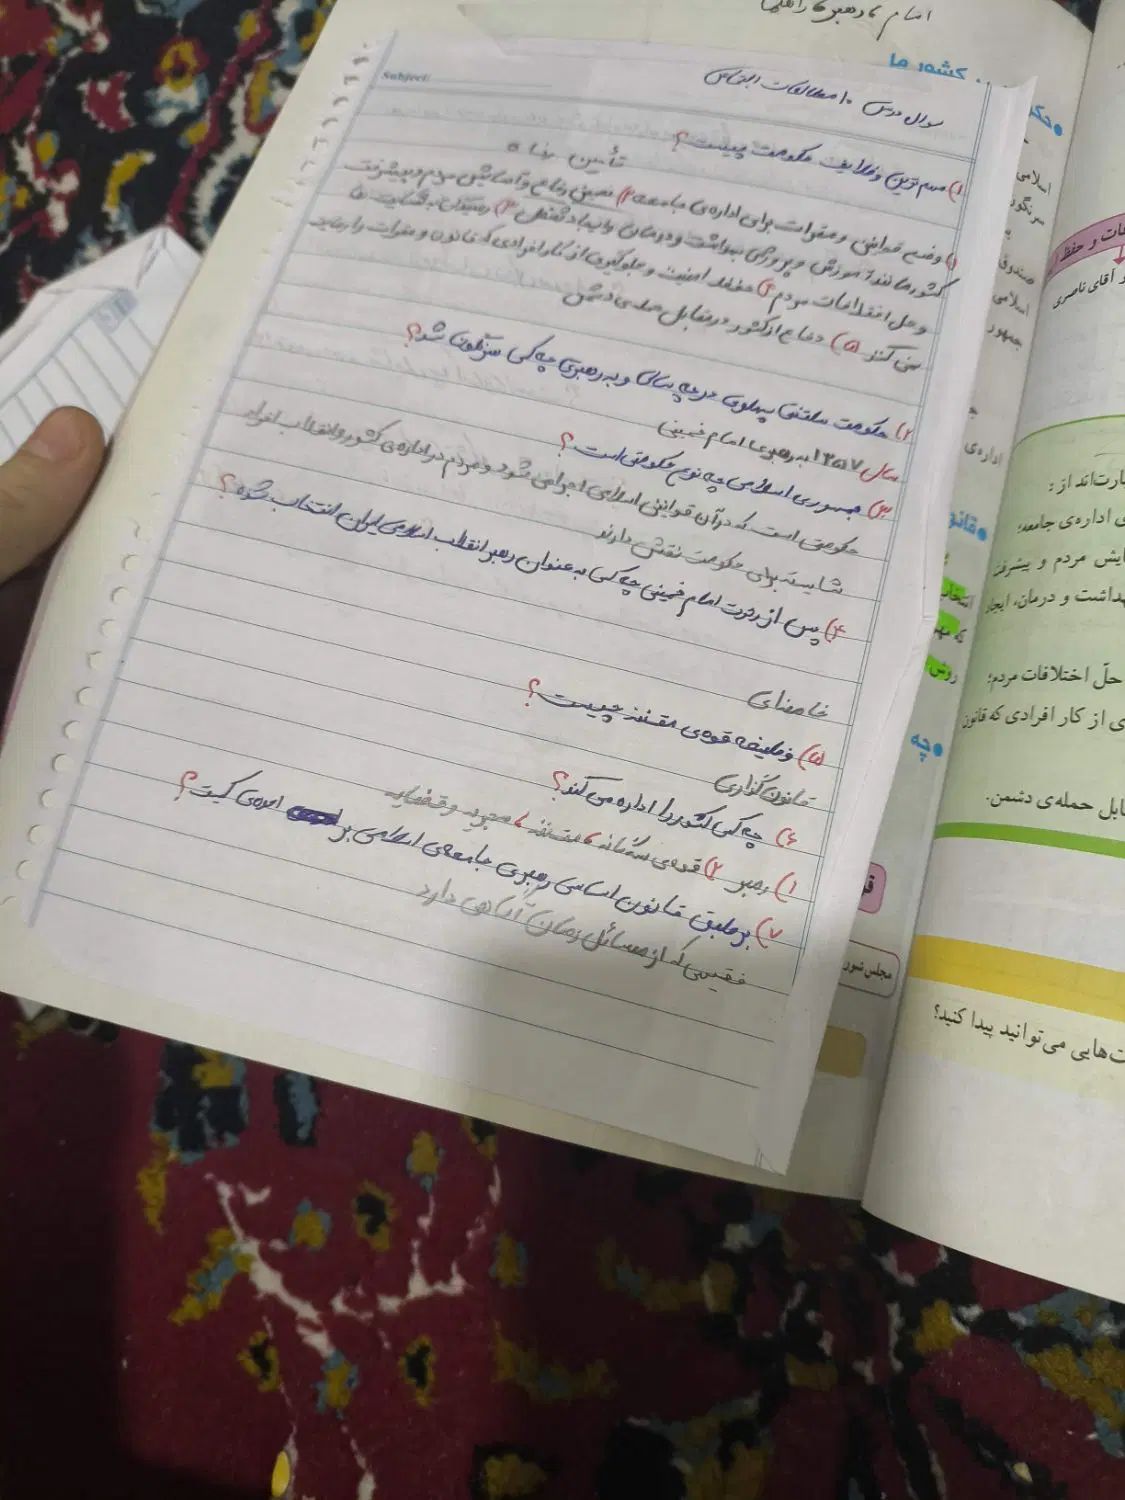 امام، رهبر، راهنما
کشور ما
Subject:
سوال درس ۱۰ مطالعات اجتماعی
۱) مهم ترین وظایف حکومت چیست؟
تأمین رفاه
۱) وضع قوانین و مقررات برای اداره‌ی جامعه ۲) تعیین رفاه و آسایش مردم و پیشرفت
کشور مانند آموزش و پرورش بهداشت و درمان و ایجاد شغل ۳) رسیدگی به شکایت ها
و حل اختلافات مردم ۴) حفظ امنیت و جلوگیری از کار افرادی که قانون و مقررات را رعایت
نمی کنند ۵) دفاع از کشور در مقابل حمله‌ی دشمن
۲) حکومت سلطنتی پهلوی در چه سالی و به رهبری چه کسی سرنگون شد؟
سال ۱۳۵۷ به رهبری امام خمینی
۳) جمهوری اسلامی چه نوع حکومتی است؟
حکومتی است که در آن قوانین اسلامی اجرا می شود و مردم در اداره‌ی کشور و انتخاب افراد
شایسته برای حکومت نقش دارند
۴) پس از رحلت امام خمینی چه کسی به عنوان رهبر انقلاب اسلامی ایران انتخاب شده؟
خامنه‌ای
۵) وظیفه قوه‌ی مقننه چیست؟
قانون گزاری
۶) چه کسی کشور را اداره می کند؟
۱) رهبر ۲) قوه‌ی سه گانه، مقننه، مجریه و قضاییه
۷) بر طبق قانون اساسی رهبری جامعه‌ی اسلامی بر عهده‌ی کیست؟
فقیهی که از مسائل زمان آگاهی دارد
حک
اسلامی
سرنگو
صندوق
اسلامی
جمهور
اداره‌ی
قانو
انتخاب
که مهم
روش
چه
مجلس شور
ات و حفظ
آقای ناصری
بارت‌اند از:
ی اداره‌ی جامعه؛
ایش مردم و پیشرفت
هداشت و درمان، ایجاد
حلّ اختلافات مردم؛
ی از کار افرادی که قانون
ابل حمله‌ی دشمن.
ت‌هایی می‌توانید پیدا کنید؟